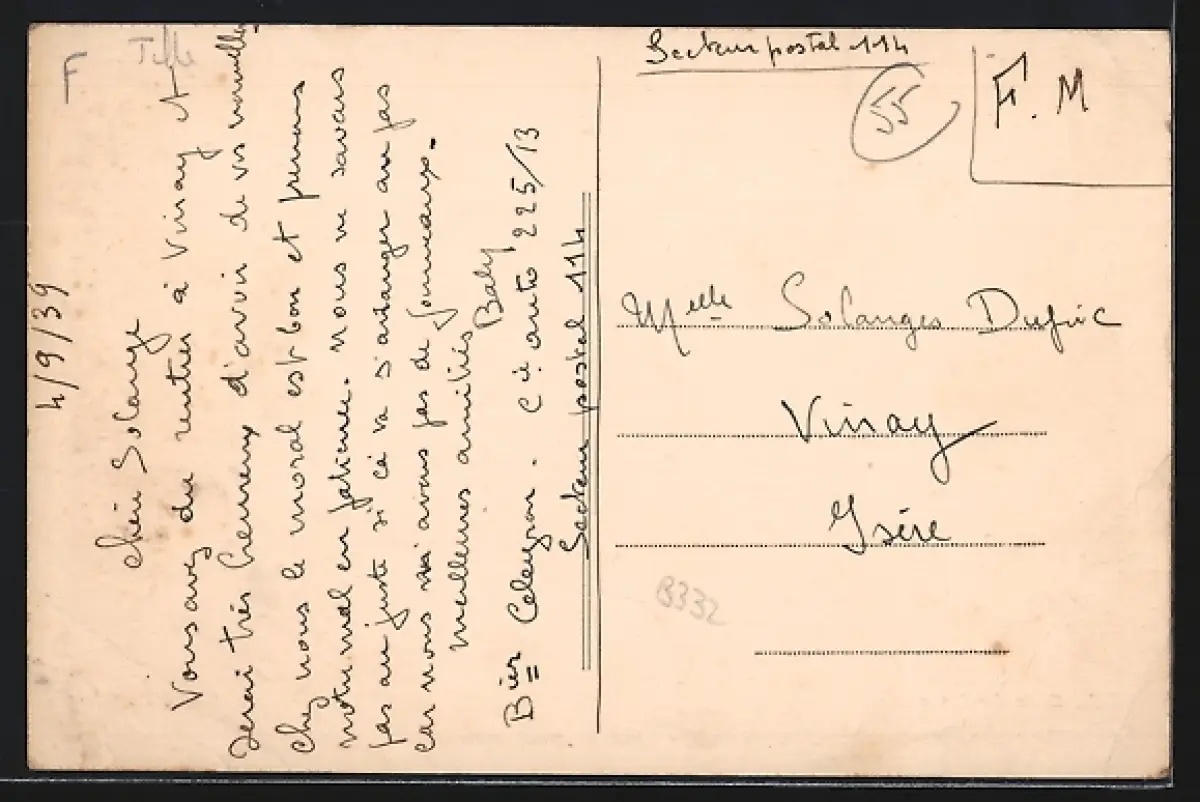 F
4/9/39
Chère Solange
Vous avez du rentrer à Vinay et
serai très heureux d'avoir de vos nouvelles.
Chez nous le moral est bon et prenons
notre mal en patience. Nous ne savons
pas au juste si ça va s'arranger ou pas
car nous n'avons pas de journeaux.
meilleures amitiés
Baly
Bier Celeyron. Cie auto 225/13
Secteur postal 114
Secteur postal 114
55
F.M
Melle Solanges
Vinay
Isère
B332